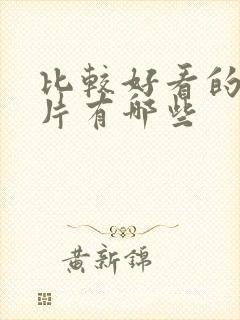 比較好看的
片有哪些
黄新錦